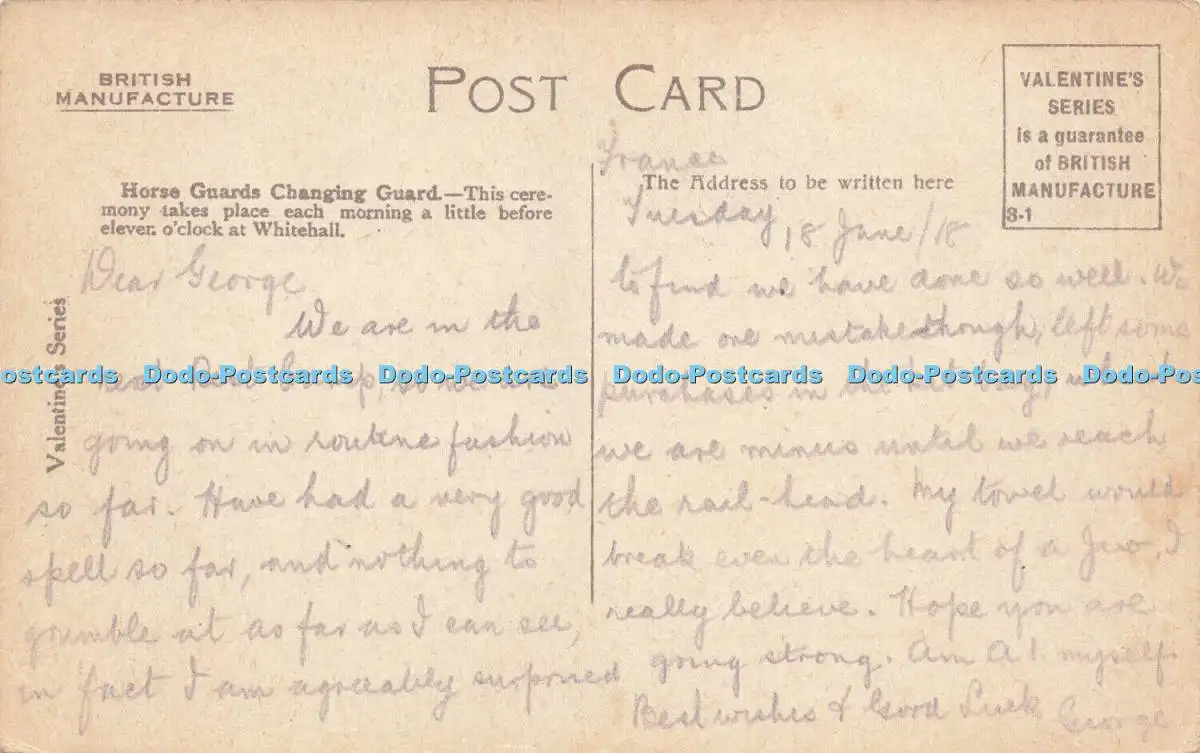 BRITISH
MANUFACTURE
POST CARD
VALENTINE'S
SERIES
is a guarantee
of BRITISH
MANUFACTURE
8-1
Horse Guards Changing Guard.—This cere-
mony takes place each morning a little before
eleven o'clock at Whitehall.
Valentine's Series
The Address to be written here
France
Tuesday, 18 June/18
Dear George
We are in the
Camp,
going on in routine fashion
so far. Have had a very good
spell so far, and nothing to
grumble at as far as I can see,
in fact I am agreeably surprised
to find we have done so well. We
made one mistake though, left some
purchases in the kit bag, which
we are minus until we reach
the rail-head. My towel would
break even the heart of a Jew, I
really believe. Hope you are
going strong. Am A1. myself.
Best wishes & Good Luck George
ostcards Dodo-Postcards Dodo-Postcards Dodo-Postcards Dodo-Postcards Dodo-Postc